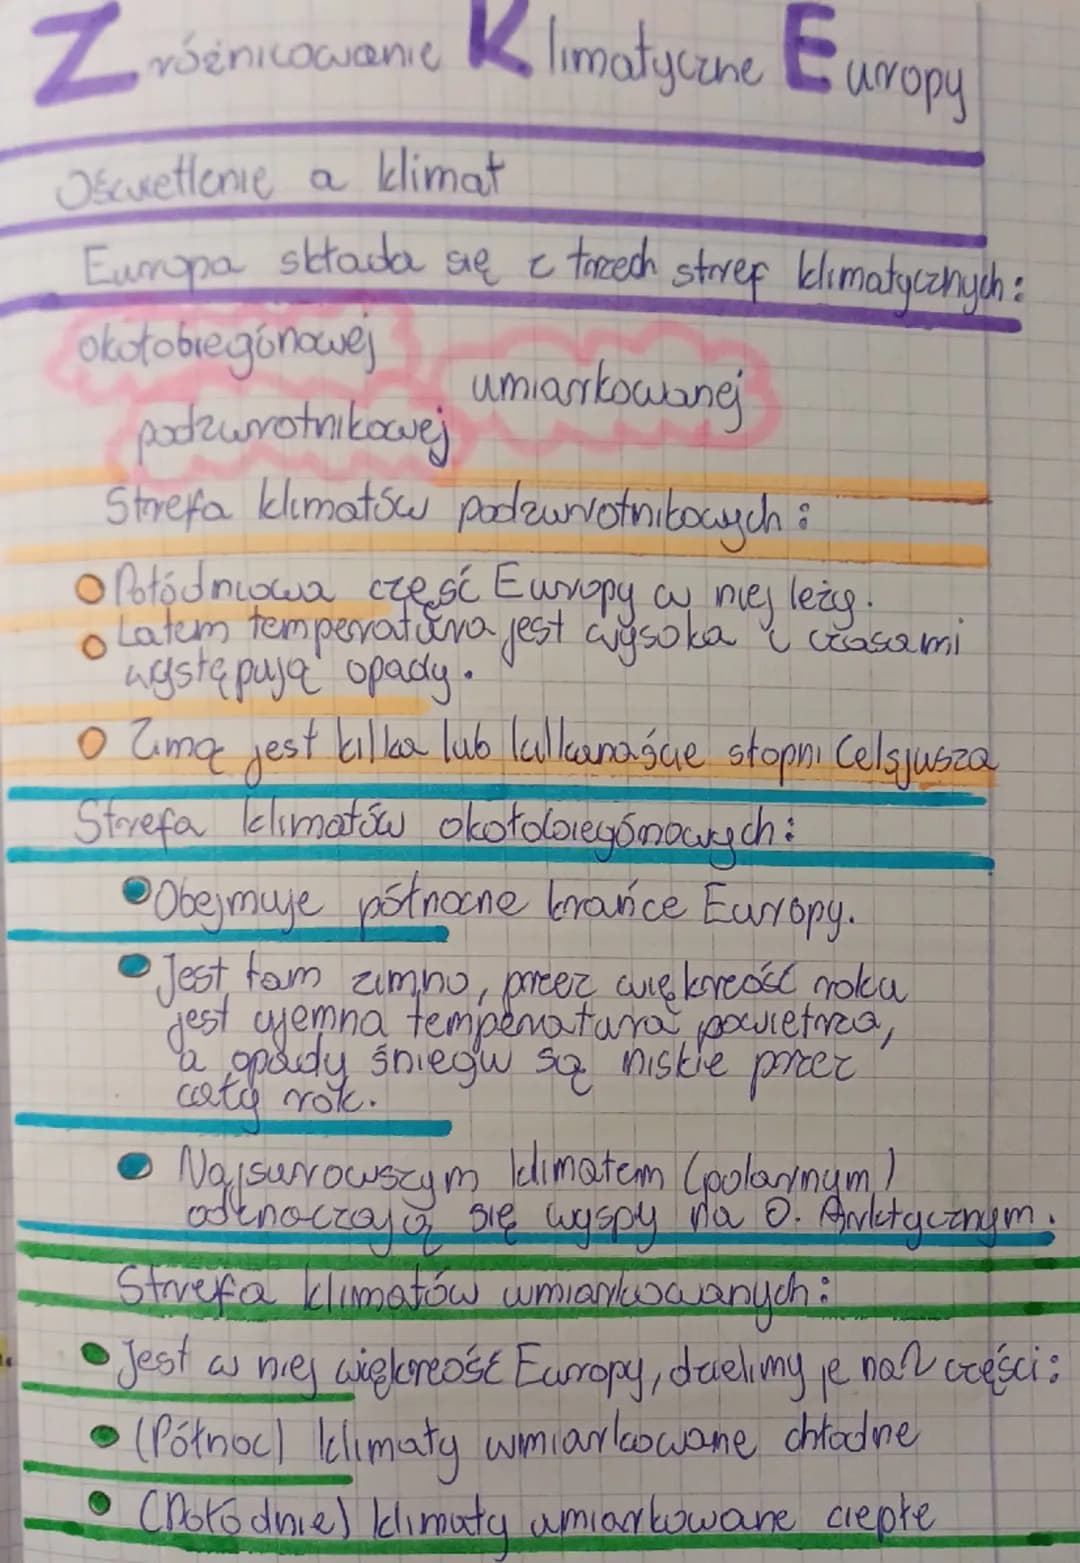 Zróżnicowanie Klimatyczne Europy
Oświetlenie a klimat
Europa składa się z trzech stref klimatycznych:
okołobiegónowej
umiarkowanej
podzwrotnikowej
Strefa klimatów podzwrotnikowych:
Połódniowa część Europy w niej leży.
Latem temperatura jest wysoka i czasami
występują opady.
Zimą jest kilka lub kilkanaście stopni Celsjusza
Strefa klimatów okołobiegónowych:
Obejmuje północne krańce Europy.
Jest tam zimno, przez większość roku
jest ujemna temperatura powietrza,
a opady śniegu są niskie przez
cały rok.
Najsurowszym klimatem (polarnym)
odznaczają się wyspy na O. Arktycznym.
Strefa klimatów umiarkowanych:
Jest w niej większość Europy, dzielimy je na 2 części:
(Północ) klimaty umiarkowane chłodne
(Połódnie) klimaty umiarkowane ciepłe